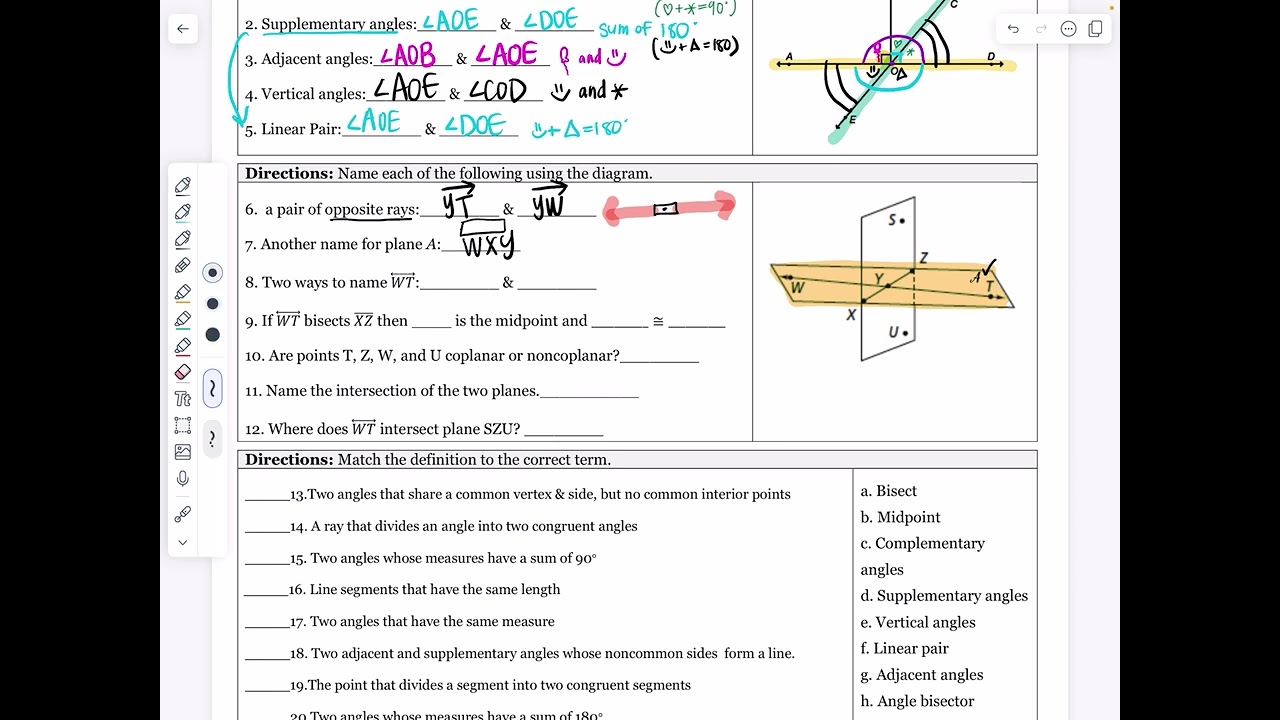 (♡+*=90°)
2. Supplementary angles: ∠AOE & ∠DOE sum of 180°
3. Adjacent angles: ∠AOB & ∠AOE and
(+Δ=180)
4. Vertical angles: ∠AOE & ∠COD and *
5. Linear Pair: ∠AOE & ∠DOE +Δ=180°
C
A
D
O
Δ
E
Directions: Name each of the following using the diagram.
6. a pair of opposite rays: YT & YW
7. Another name for plane A: WXY
8. Two ways to name WT: ________ & ________
9. If WT bisects XZ then ____ is the midpoint and ______ ≅ ______
10. Are points T, Z, W, and U coplanar or noncoplanar?________
11. Name the intersection of the two planes.__________
12. Where does WT intersect plane SZU? ________
S
Z
A
W
Y
T
X
U
Directions: Match the definition to the correct term.
_____13.Two angles that share a common vertex & side, but no common interior points
_____14. A ray that divides an angle into two congruent angles
_____15. Two angles whose measures have a sum of 90°
_____16. Line segments that have the same length
_____17. Two angles that have the same measure
_____18. Two adjacent and supplementary angles whose noncommon sides form a line.
_____19.The point that divides a segment into two congruent segments
20. Two angles whose measures have a sum of 180°
a. Bisect
b. Midpoint
c. Complementary
angles
d. Supplementary angles
e. Vertical angles
f. Linear pair
g. Adjacent angles
h. Angle bisector
Tt